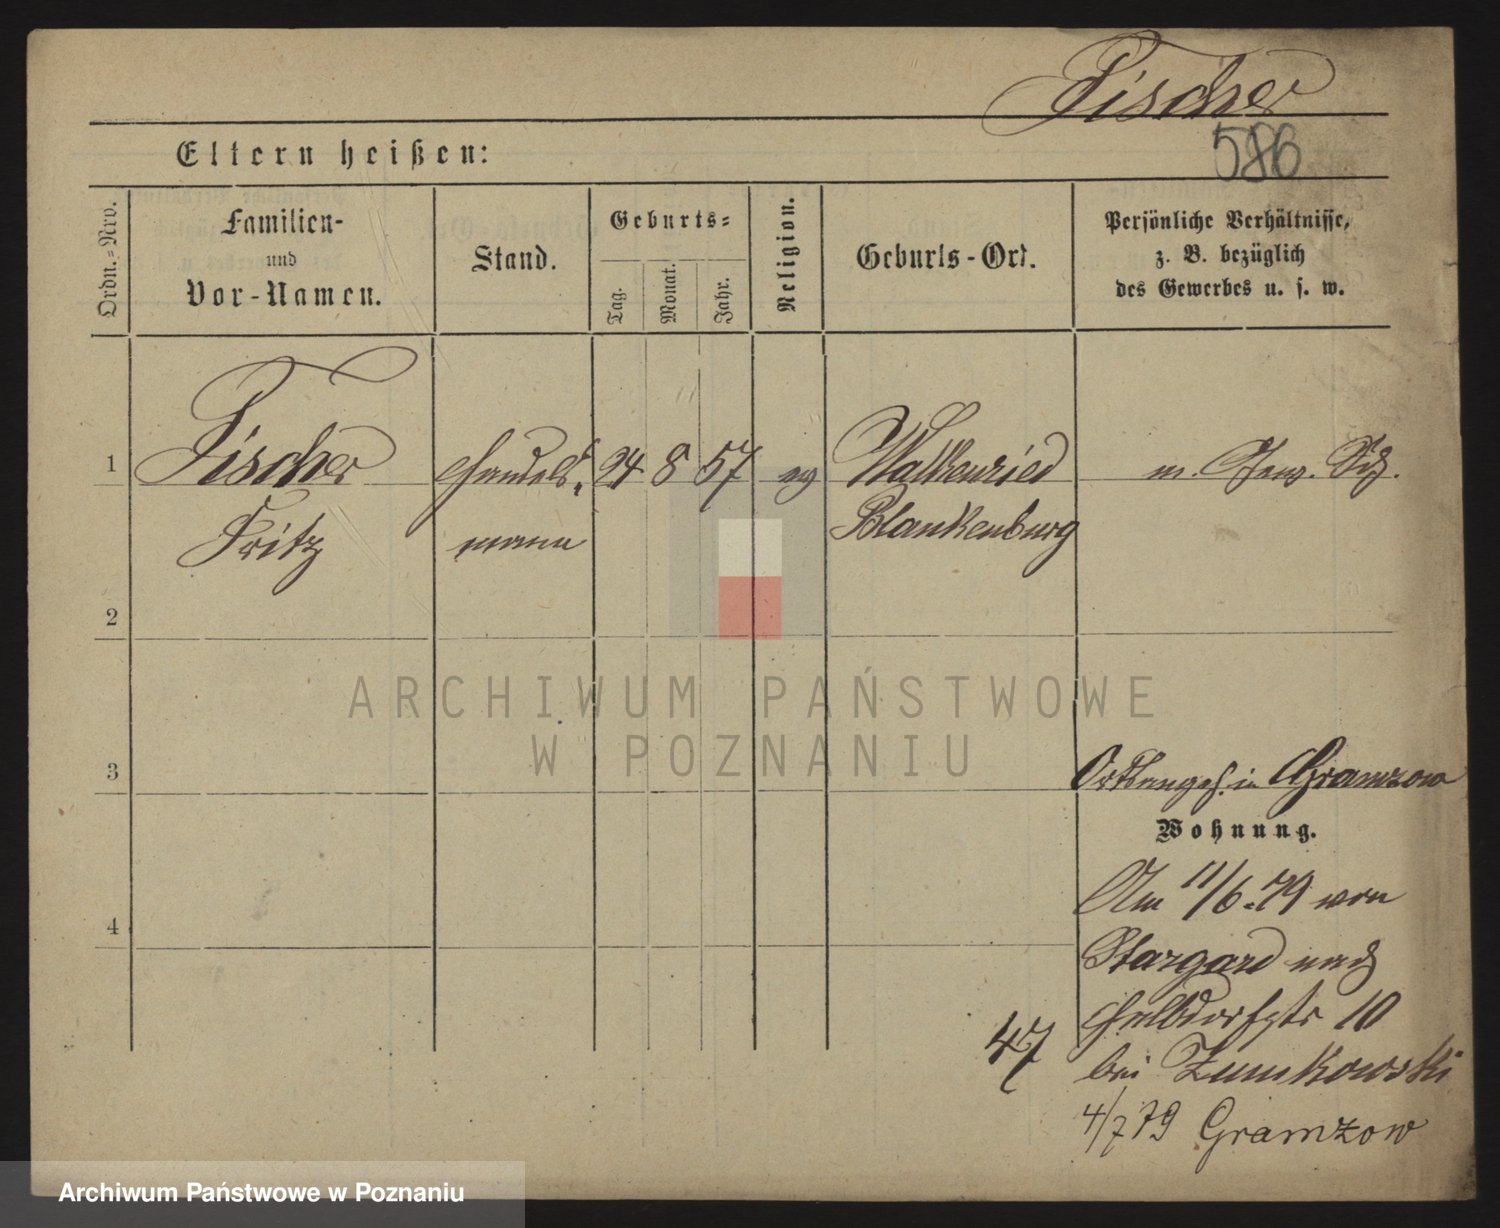 Fischer
586
Eltern heißen:
Ordn.=Nro.
Familien-
und
Vor-Namen.
Stand.
Geburts=
Tag.
Monat.
Jahr.
Religion.
Geburts-Ort.
Persönliche Verhältnisse,
z. B. bezüglich
des Gewerbes u. s. w.
1
Fischer
Handels=
24
8
57
ev
Walkenried
m. Gew. Sch.
Fritz
mann
Blankenburg
2
ARCHIWUM PAŃSTWOWE
W POZNANIU
3
in Gramzow
Wohnung.
4
Am 11/6.79 von
Stargard nach
Halbdorfstr 10
47
bei Zumkowski
4/7 79 Gramzow
Archiwum Państwowe w Poznaniu